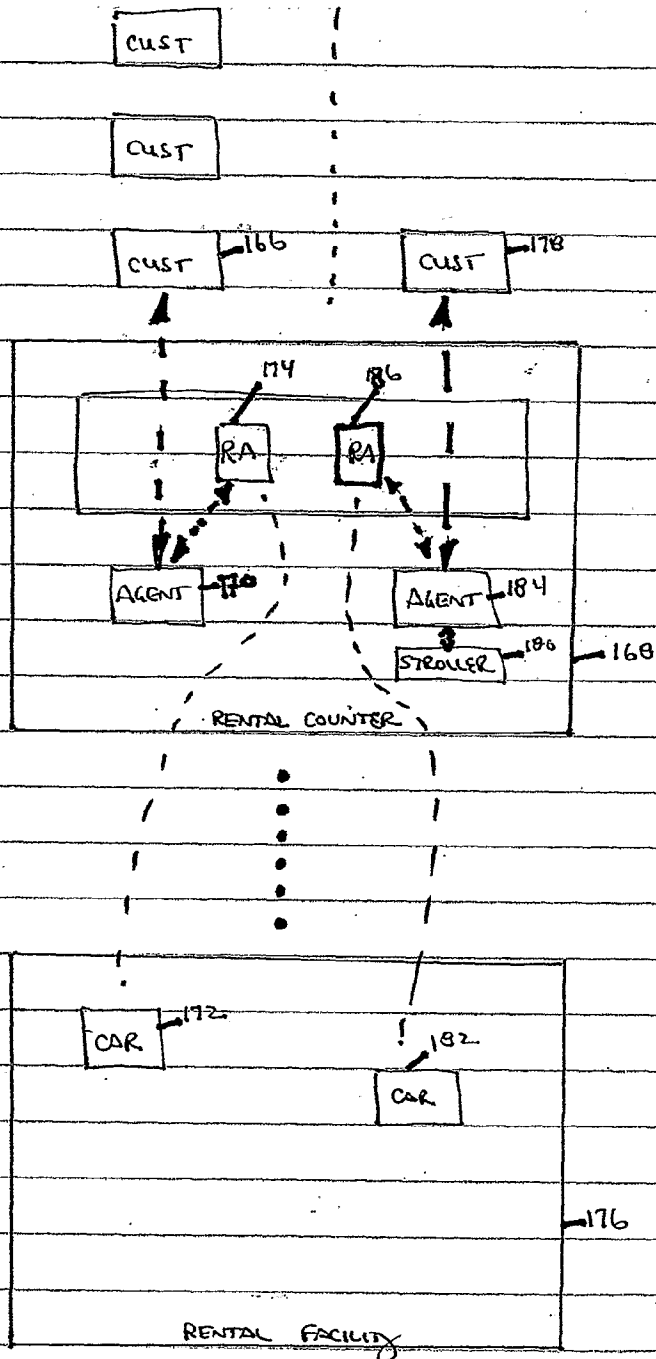 CUST
CUST
CUST 166 CUST 178
174 186
RA RA
AGENT AGENT 184
STROLLER 180
168
RENTAL COUNTER
CAR 172
182
CAR
176
RENTAL FACILITY